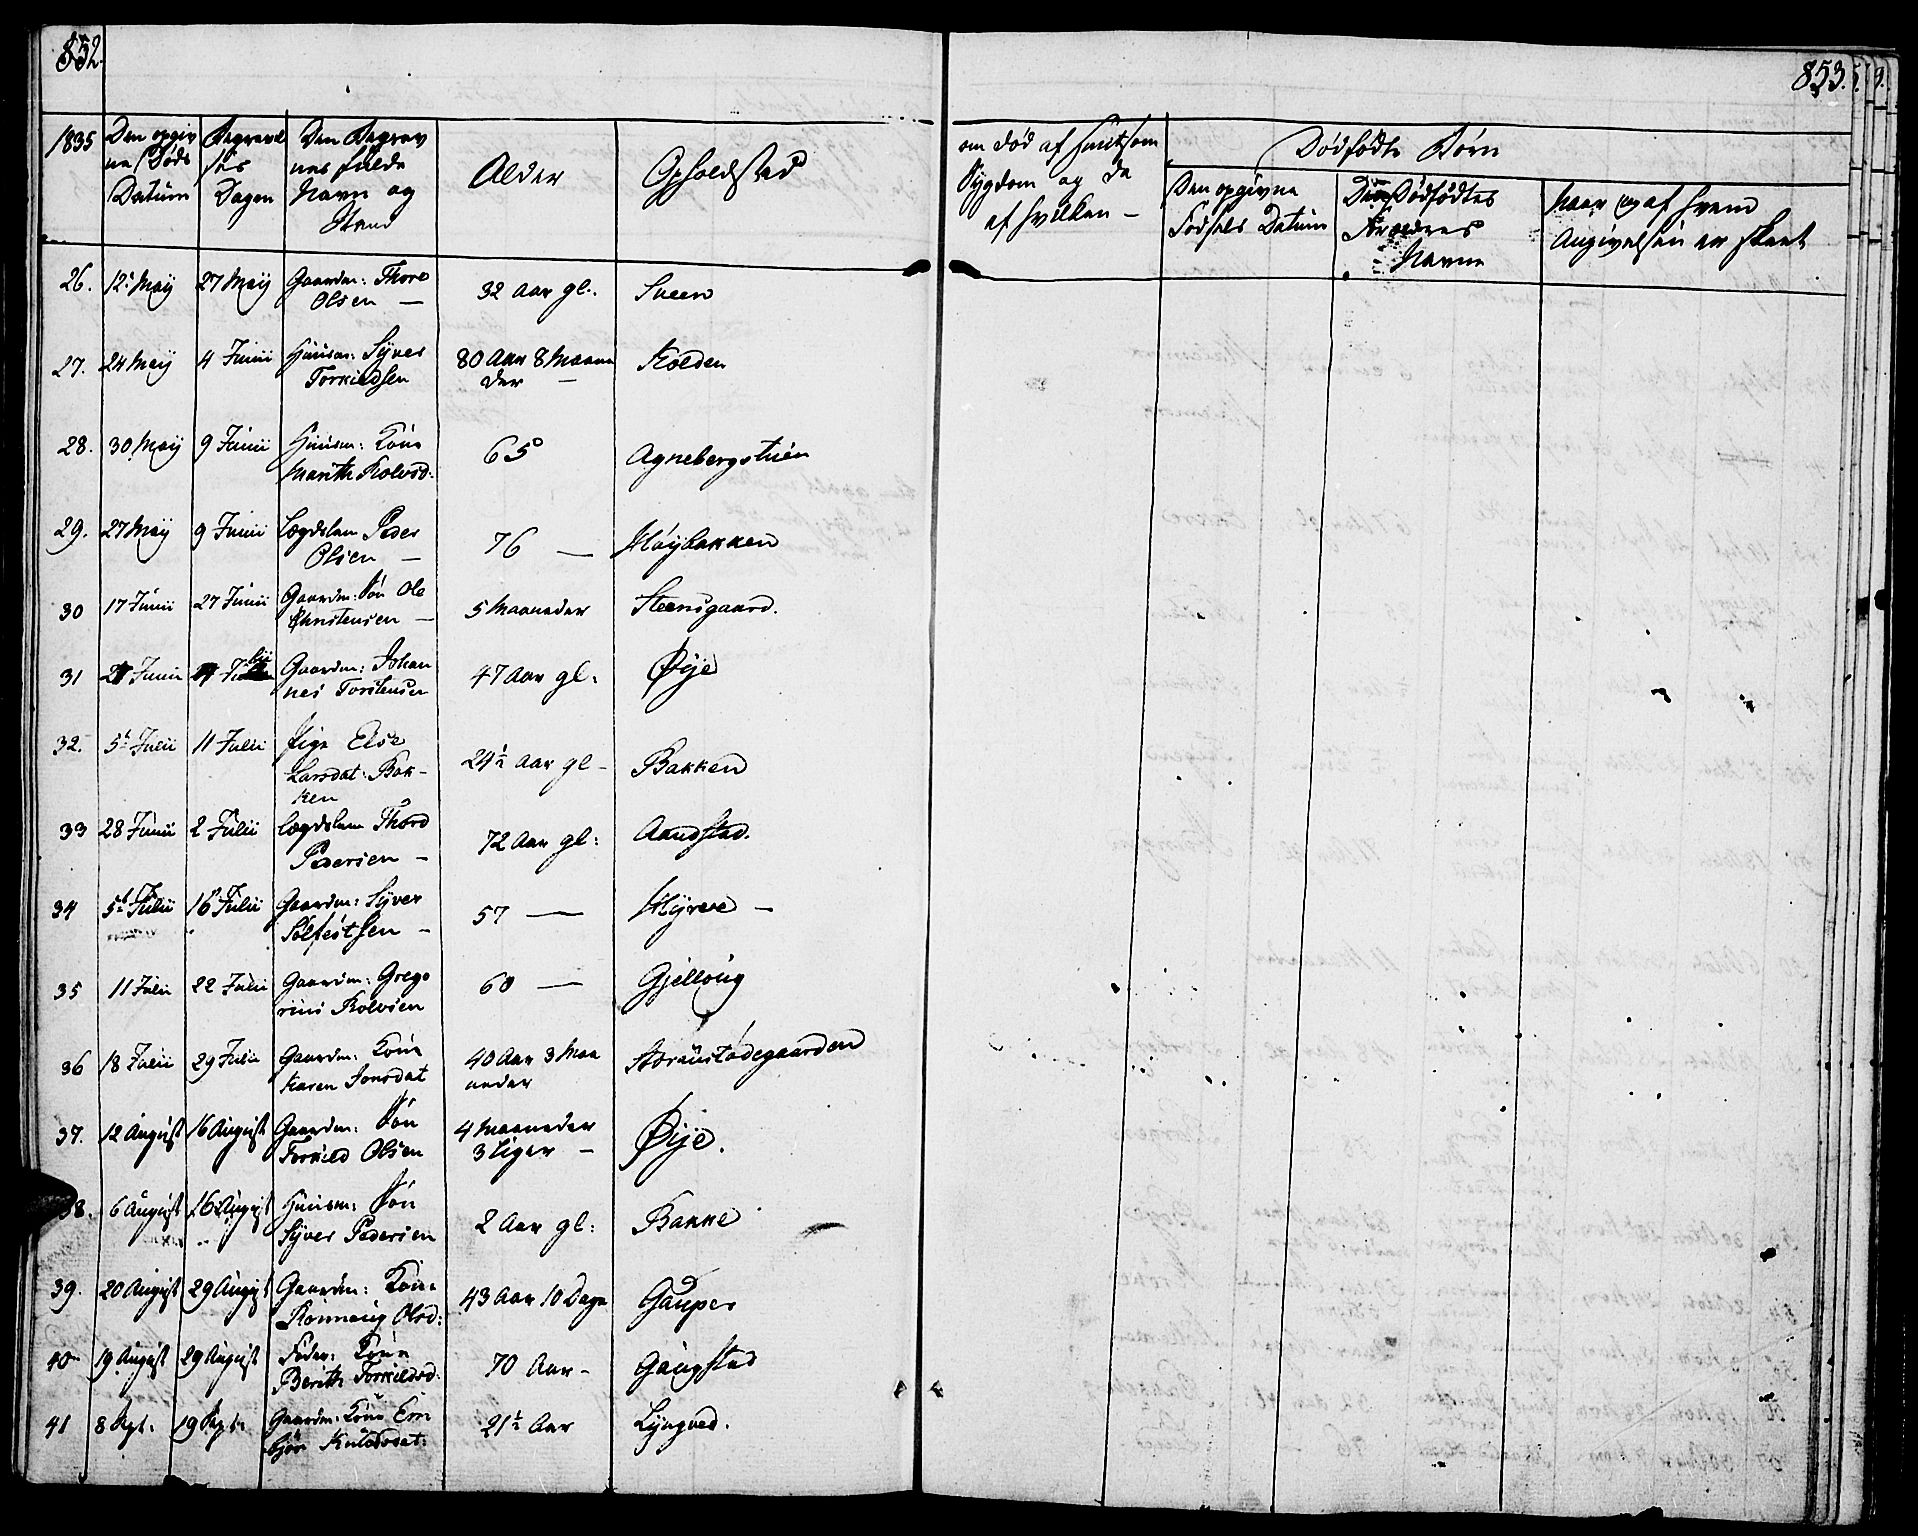 852.
1835 Den opgivne Døds Datum | Begravelses Dagen | Den Begravnes fulde Navn og Stand | Alder | Opholdsted
26. 12t Maij 27 Maij Gaardm: Thore Olsen — 32 Aar gl. Sveen
27. 24 Maij 4 Junii Huusm: Syver Torkildsen 80 Aar 8 Maaneder — Kolden
28. 30 Maij 9 Junii Huusm: Kone Marith Rolvsd: 65 Agnebergstuen
29. 27 Maij 9 Junii Lægdslem Peder Olsen — 76 — Høybakken
30 17 Junii 27 Junii Gaardm: Søn Ole Christensen — 5 Maaneder Steensgaard.
31 Junii Gaardm: Johannes Torstensen 47 Aar gl: Øije
32. 5t Julii 11 Julii Pige Else Larsdat: Bakken 24½ Aar gl — Bakken
33 28 Junii 2 Julii Lægdslem Thord Pedersen — 72 Aar gl: Aandstad.
34 5t Julii 16 Julii Gaardm: Syver Sølfestsen — 57 — Myre —
35 11 Julii 22 Julii Gaardm: Gregorius Rolvsen 60 — Gjelloug
36 18 Julii 29 Julii Gaardm: Kone Karen Jonsdat 40 Aar 3 Maaneder
37. 12 August 16 August Gaardm: Søn Torkild Olsen 4 Maaneder 3 Uger — Øije.
38. 6 August 16 August Huusm: Søn Syver Pedersen 2 Aar gl: Bakke
39. 20 August 29 August Gaardm: Kone Rønnaug Olsd: 43 Aar 10 Dage Gauper
40 19 August 29 August Føder: Kone Berith Torkildsd: 70 Aar — Gaugstad
41 8 Sept. 19 Sept. Gaardm: Kone Embjør Knudsdat: 21½ Aar Lyngved.
853.
om død af hvilken —
Sygdom og da
Dødfødte Børn
Den opgivne Fødsels Datum | Dødfødtes Forældres Navne | Naar og af hvem Angivelsen er skeet